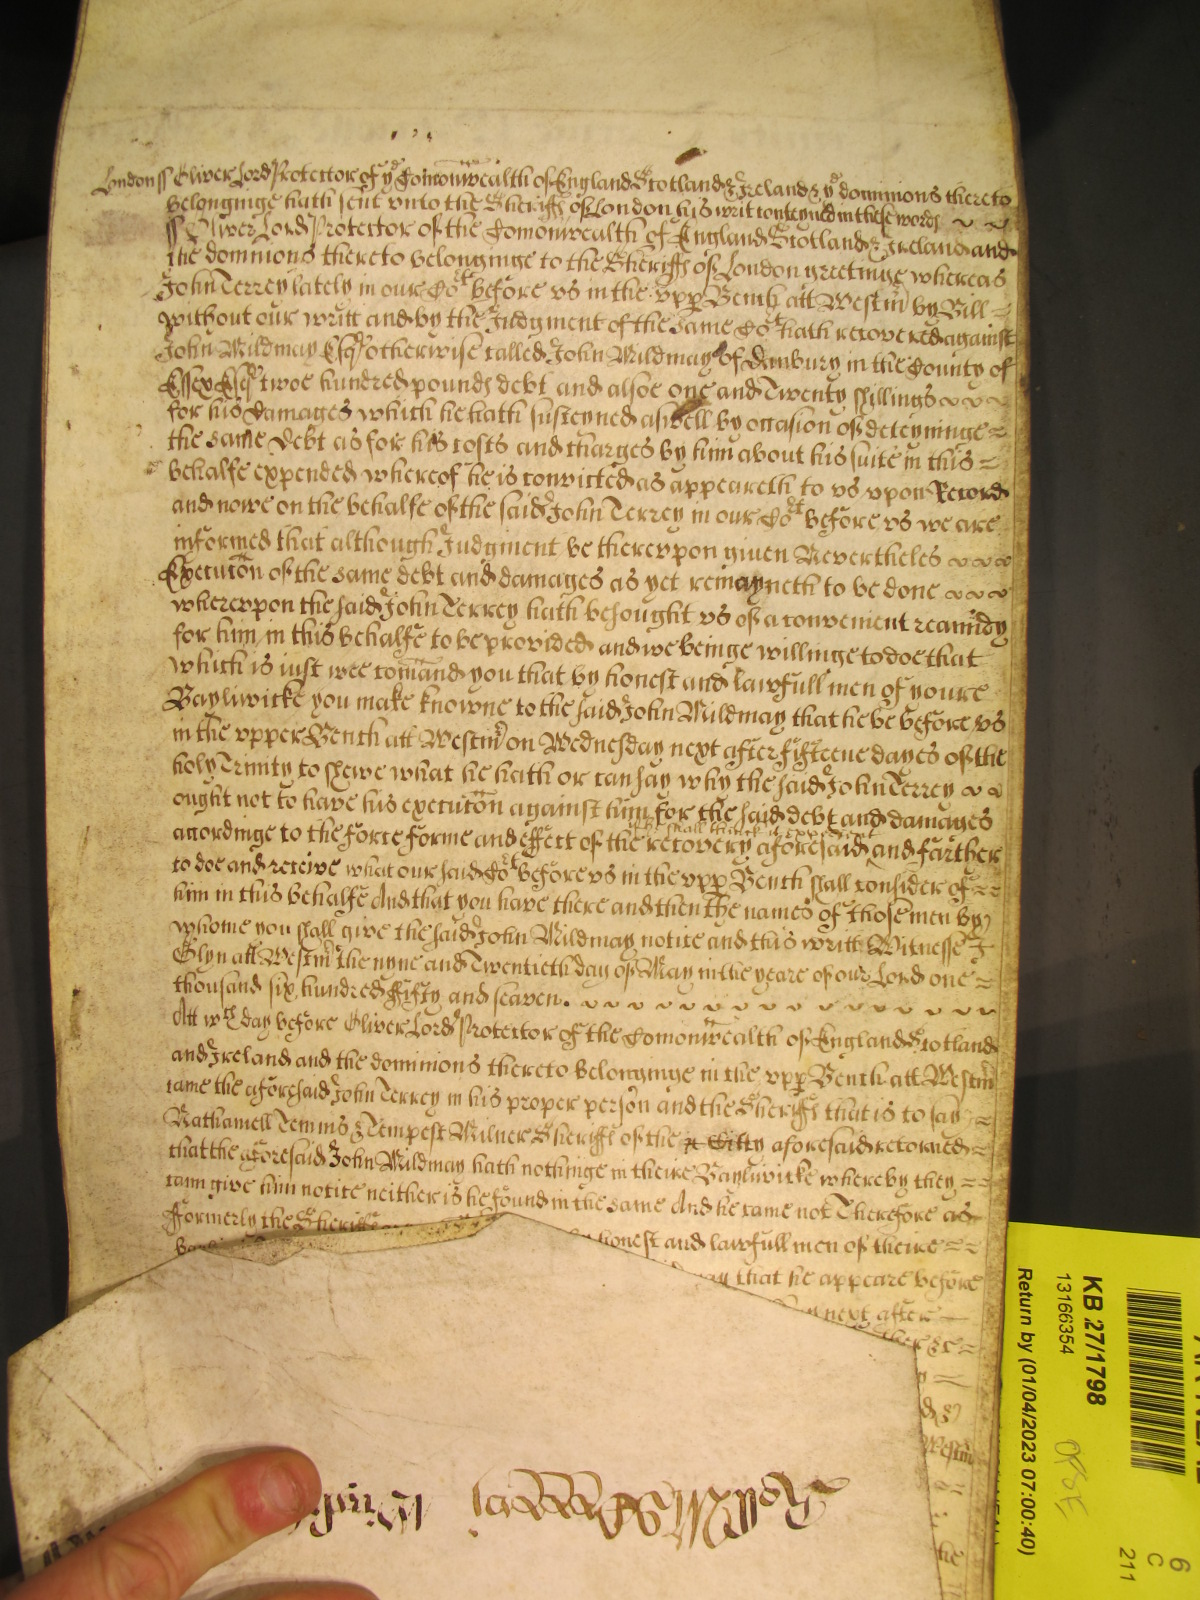 London ss Oliver Lord Protector of ye Comonwealth of England Scotland & Ireland & ye dominions thereto
belonginge hath sent unto the Sheriffs of London his writ conteyned in these words
ss Oliver Lord Protector of the Comonwealth of England Scotland & Ireland and
the dominions thereto belonginge to the Sheriffs of London greetinge whereas
John Terrey lately in our Cort before us in the upp Bench att Westm by Bill
without our writt and by the Judgment of the same Cort hath recovered against
John Mildmay Esqr otherwise called John Mildmay of Danbury in the County of
Essex Esqr twoe hundred pounds debt and alsoe one and Twenty shillings
for his damages which he hath susteyned aswell by occasion of deteyninge
the same debt as for his costs and charges by him about his suite in this
behalfe expended whereof he is convicted as appeareth to us upon Record
and nowe on the behalfe of the said John Terrey in our Cort before us we are
informed that although Judgment be thereupon given Nevertheles
Execucon of the same debt and damages as yet remayneth to be done
whereupon the said John Terrey hath besought us of a convenient reamidy
for him in this behalfe to be provided and we beinge willinge to doe that
which is iust wee comand you that by honest and lawfull men of youre
Bayliwicke you make knowne to the said John Mildmay that he be before us
in the upper Bench att Westm on Wednesday next after fifteene dayes of the
holy Trinity to shewe what he hath or can say why the said John Terrey
ought not to have his execucon against him for the said debt and damages
accordinge to the force forme and effect of the recovery aforesaid if he shall thinck it expedient and farther
to doe and receive what our said Cort before us in the upp Bench shall consider of
him in this behalfe And that you have there and then the names of those men by
whome you shall give the said John Mildmay notice and this writt Witnesse J
Glyn att Westm the nyne and Twentieth day of May in the yeare of our Lord one
thousand six hundred Fifty and seaven.
Att wch day before Oliver Lord Protector of the Comonwealth of England Scotland
and Ireland and the dominions thereto belonginge in the upp Bench att Westm
came the aforesaid John Terrey in his proper person and the Sheriffs that is to say
Nathaniell Temms & Tempest Milner Sheriffs of the Citty aforesaid retorned
that the aforesaid John Mildmay hath nothinge in theire Bayliwicke whereby they
cann give him notice neither is he found in the same And he came not Therefore as
Formerly the Sheriffs
honest and lawfull men of theire
that he appeare before
next after
&c
Westm
he
KB 27/1798
13166354
Return by (01/04/2023 07:00:40)
6
C
211